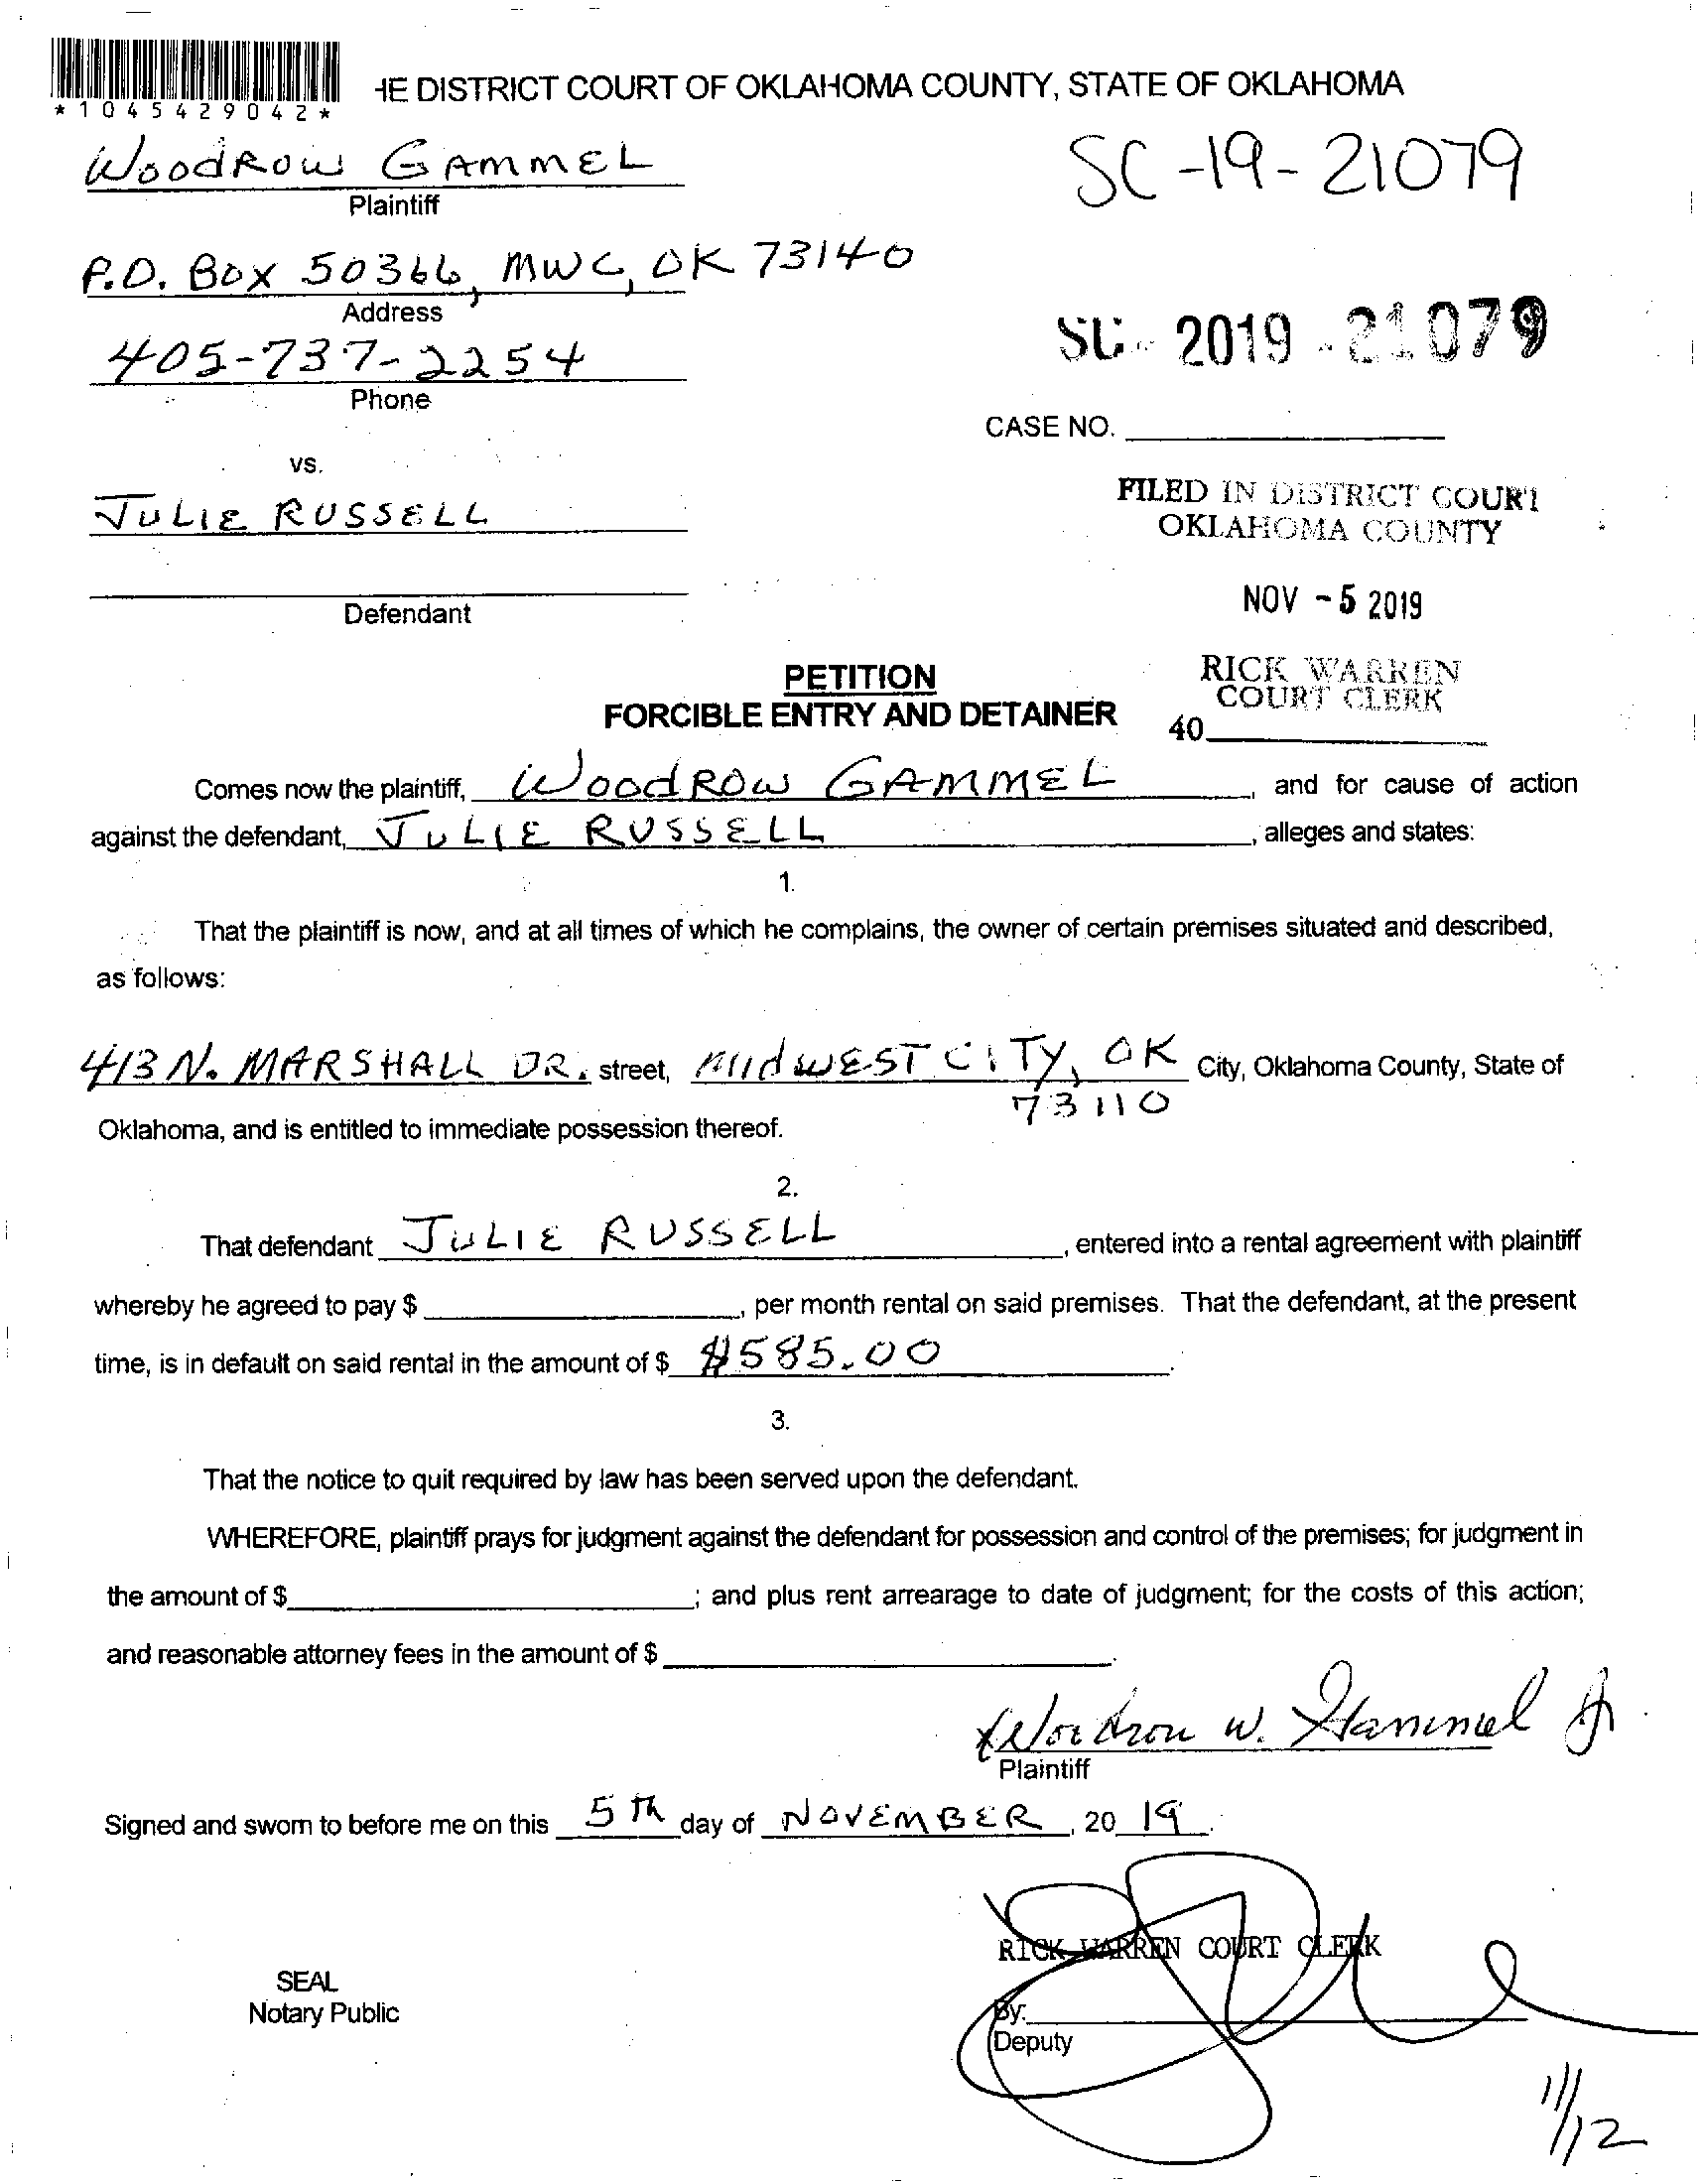 *1045429042*
HE DISTRICT COURT OF OKLAHOMA COUNTY, STATE OF OKLAHOMA
WOODROW GAMMEL
Plaintiff
SC-19-21079
P.O. BOX 50366, MWC, OK 73140
Address
SC- 2019 -21079
405-737-2254
Phone
CASE NO.
vs.
JULIE RUSSELL
FILED IN DISTRICT COURT
OKLAHOMA COUNTY
Defendant
NOV - 5 2019
PETITION
FORCIBLE ENTRY AND DETAINER
RICK WARREN
COURT CLERK
40
Comes now the plaintiff, WOODROW GAMMEL, and for cause of action
against the defendant, JULIE RUSSELL, alleges and states:
1.
That the plaintiff is now, and at all times of which he complains, the owner of certain premises situated and described,
as follows:
413 N. MARSHALL DR. street, MIDWEST CITY, OK City, Oklahoma County, State of
73110
Oklahoma, and is entitled to immediate possession thereof.
2.
That defendant JULIE RUSSELL, entered into a rental agreement with plaintiff
whereby he agreed to pay $, per month rental on said premises. That the defendant, at the present
time, is in default on said rental in the amount of $ $585.00.
3.
That the notice to quit required by law has been served upon the defendant.
WHEREFORE, plaintiff prays for judgment against the defendant for possession and control of the premises; for judgment in
the amount of $; and plus rent arrearage to date of judgment; for the costs of this action;
and reasonable attorney fees in the amount of $.
Woodrow W. Gammel Jr.
Plaintiff
Signed and sworn to before me on this 5th day of NOVEMBER, 20 19.
RICK WARREN COURT CLERK
SEAL
Notary Public
By:
Deputy
11/12